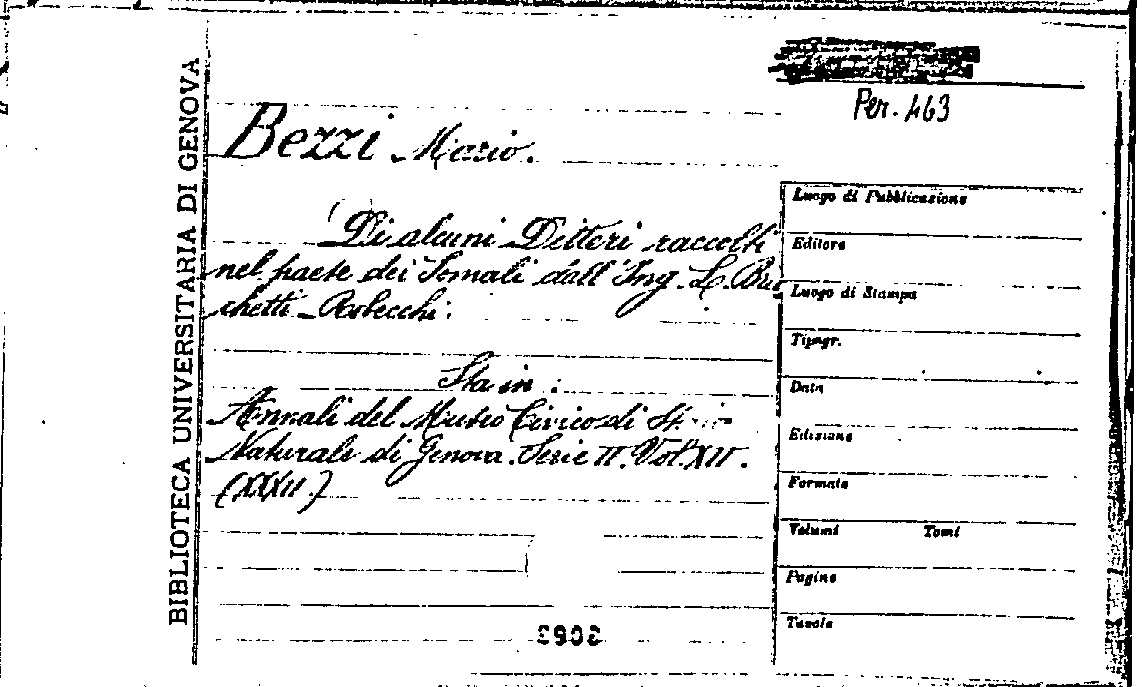 BIBLIOTECA UNIVERSITARIA DI GENOVA
Per. 463
Bezzi Mario.
Di alcuni Ditteri raccolti
nel paese dei Somali dall'Ing. L. Bric
chetti-Robecchi.
Sta in:
Annali del Museo Civico di
Naturale di Genova. Serie II. Vol. XII.
(XXXII.)
Luogo di Pubblicazione
Editore
Luogo di Stampa
Tipogr.
Data
Edizione
Formato
Volumi Tomi
Pagine
Tavole